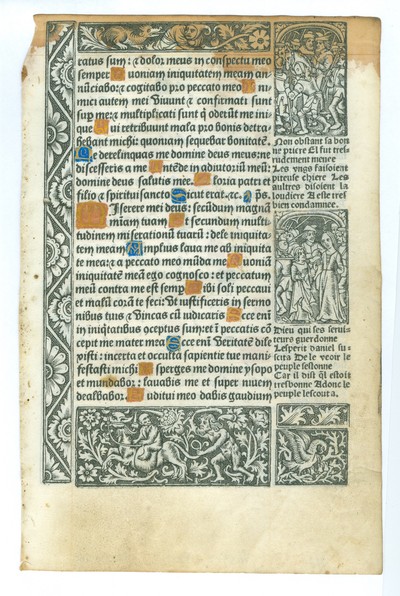 ratus sum: & dolor meus in conspectu meo
semper Quoniam iniquitatem meam an-
nũciabo: & cogitabo pro peccato meo
mici autem mei vivunt & confirmati sunt
sup me: & multiplicati sunt q̃ oderũt me ini-
que Qui retribuunt mala pro bonis detra-
hebant michi: quoniam sequebar bonitatẽ.
Ne derelinquas me domine deus meus: ne
discesseris a me Intẽde in adiutoriũ meũ:
domine deus salutis mee. Gloria patri et
filio & spiritui sancto Sicut erat. &c. ps.
Miserere mei deus: secũdum magnã
miam tuam Et secundum mult-
titudinem miserationũ tuarũ: dele iniquita-
tem meam Amplius lava me ab iniquita-
te mea: & a peccato meo mũda me Quoniã
iniquitatẽ meã ego cognosco: et peccatum
meũ contra me est semp Tibi soli peccavi
et malũ corã te feci: vt iustificeris in sermo-
nibus tuis & vincas cũ iudicaris Ecce eni
in iniq̃tatibus cõceptus sum: et ĩ peccatis cõ-
cepit me mater mea Ecce eni veritatẽ dile-
xisti: incerta et occulta sapientie tue mani-
festasti michi Asperges me domine ysopo
et mundabor: lavabis me et super nivem
dealbabor. Auditui meo dabis gaudium
Non obstant sa bon
ne priere El fut tres
rudement menee
Les vngs faisoient
piteuse chiere Les
aultres disoient la
loudiere A este tres
bien condamnee.
Dieu qui ses servi-
teurs guerdonne
Lesperit daniel su-
scita De le veoir le
peuple sestonne
Car il dist q̃l estoit
tresbonne Adonc le
peuple lescouta.